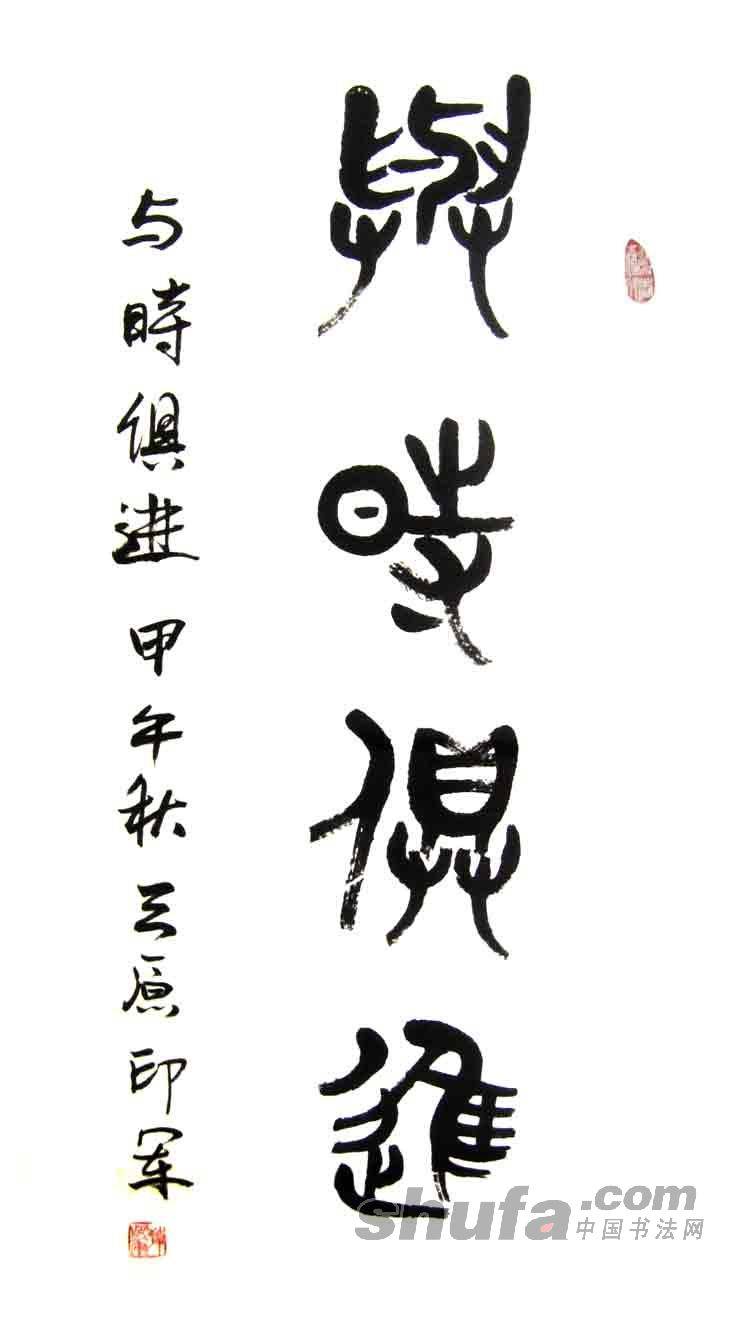 與時俱進
与時俱進 甲午秋 三原 印军
shufa.com
中国书法网